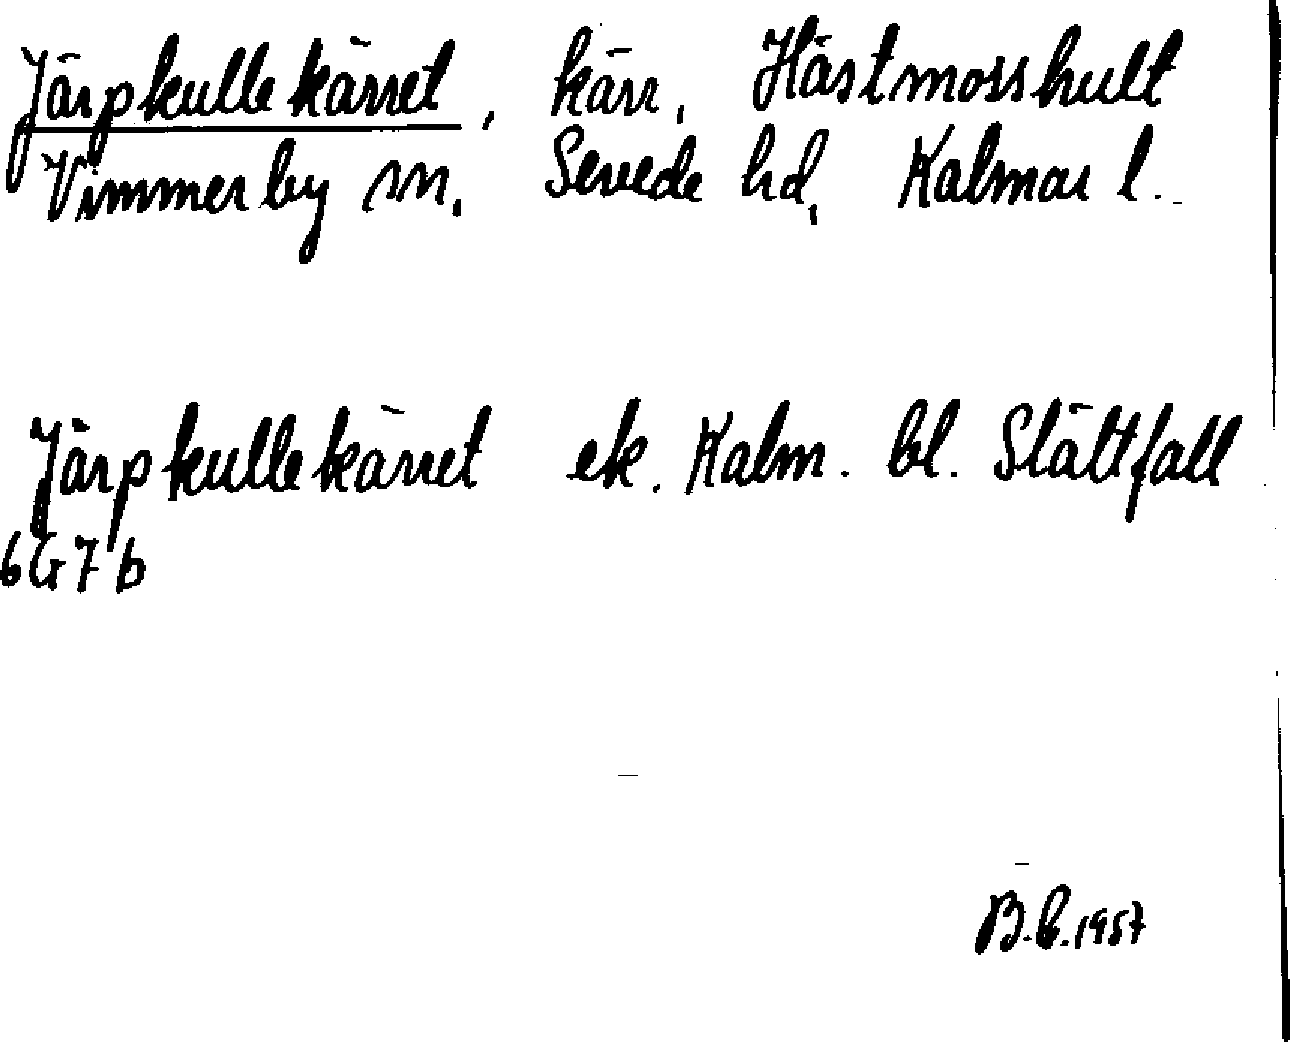 Järpkullekärret, kärr, Hästmosshult
Vimmerby sn, Sevede hd, Kalmar l.
Järpkullekärret ek. Kalm. bl. Slättfall
6G7b
B.b.1957